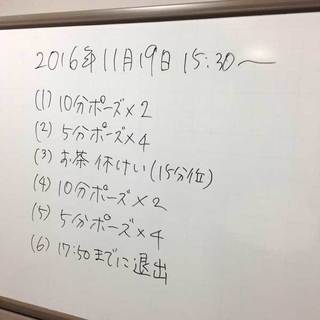 2016年11月19日 15:30〜
(1) 10分ポーズ×2
(2) 5分ポーズ×4
(3) お茶休けい(15分位)
(4) 10分ポーズ×2
(5) 5分ポーズ×4
(6) 17:50までに退出